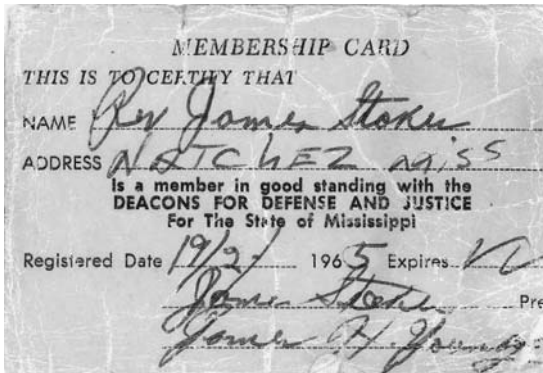 MEMBERSHIP CARD
THIS IS TO CERTIFY THAT
NAME Rev James Stokes
ADDRESS NATCHEZ MISS
Is a member in good standing with the
DEACONS FOR DEFENSE AND JUSTICE
For The State of Mississippi
Registered Date 1965 Expires
James Stokes Pre
James H Young